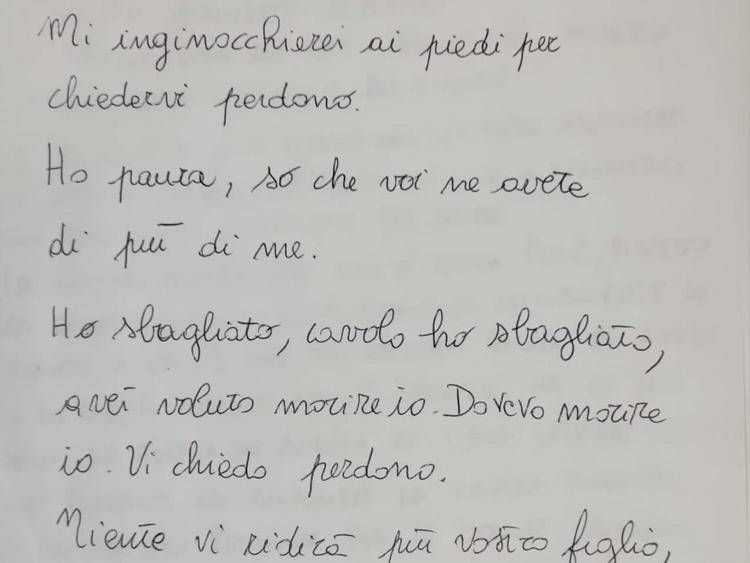 Mi inginocchierei ai piedi per
chiedervi perdono.
Ho paura, so che voi ne avete
di più di me.
Ho sbagliato, cavolo ho sbagliato,
avei voluto morire io. Dovevo morire
io. Vi chiedo perdono.
Niente vi ridirà più vostro figlio,